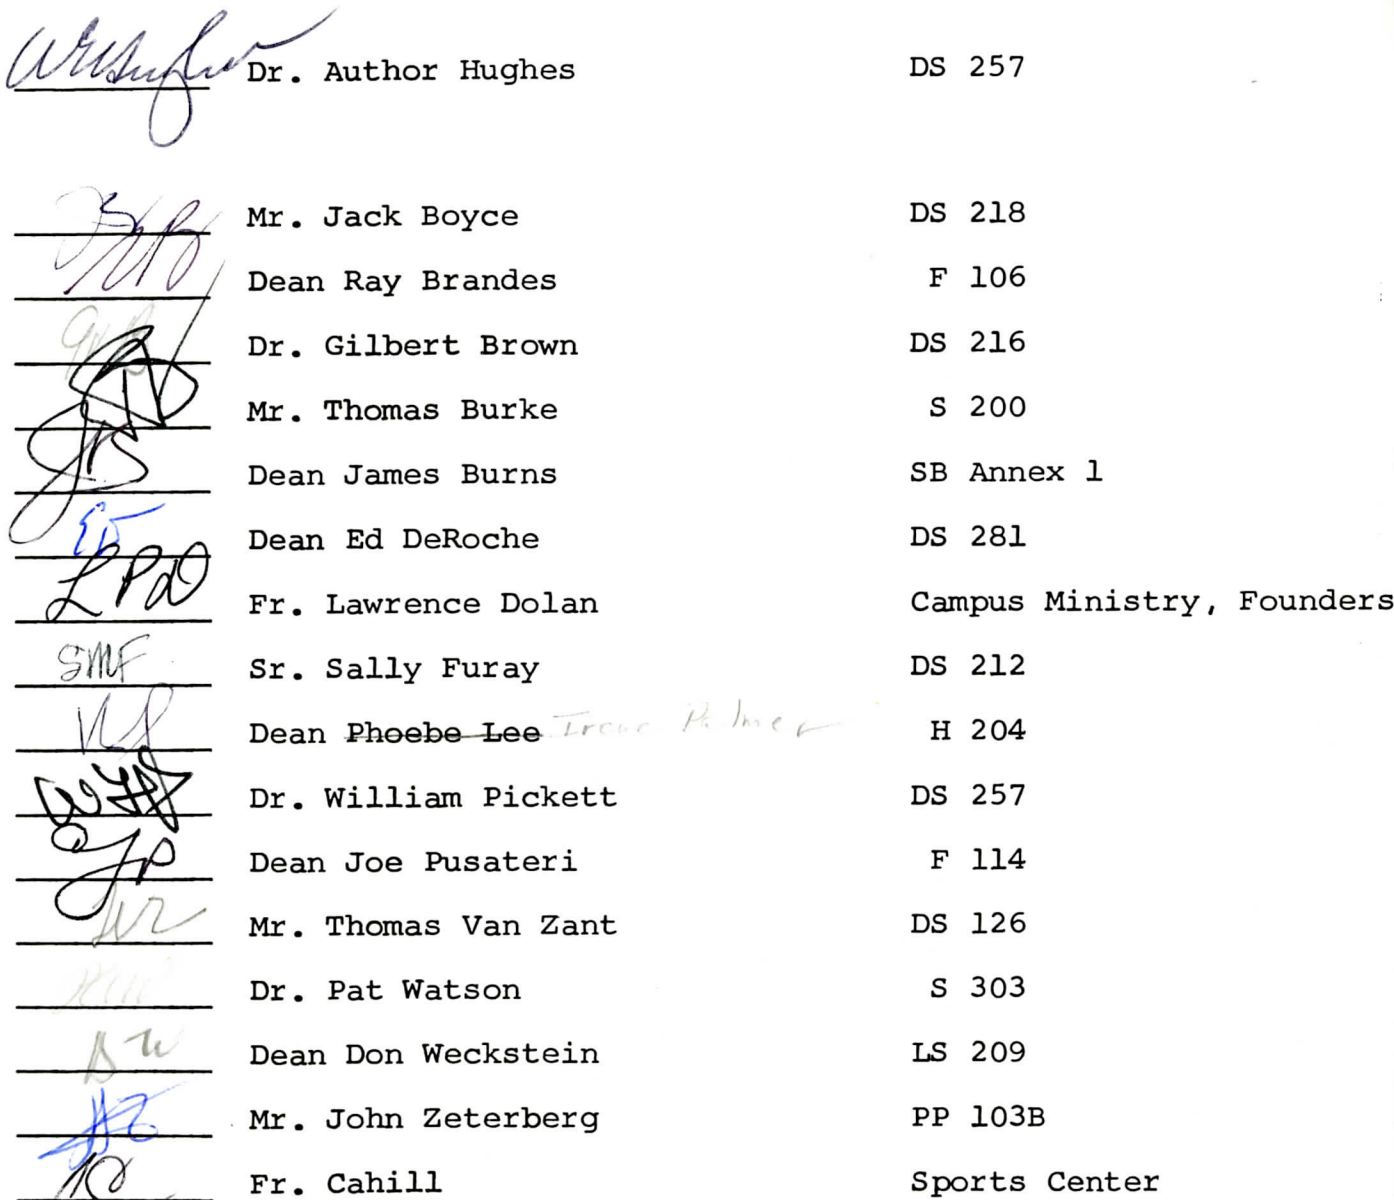 Dr. Author Hughes DS 257
Mr. Jack Boyce DS 218
Dean Ray Brandes F 106
Dr. Gilbert Brown DS 216
Mr. Thomas Burke S 200
Dean James Burns SB Annex 1
ED Dean Ed DeRoche DS 281
LPD Fr. Lawrence Dolan Campus Ministry, Founders
SMF Sr. Sally Furay DS 212
Dean Phoebe Lee Irene Palmer H 204
Dr. William Pickett DS 257
JP Dean Joe Pusateri F 114
Mr. Thomas Van Zant DS 126
Dr. Pat Watson S 303
DW Dean Don Weckstein LS 209
Mr. John Zeterberg PP 103B
Fr. Cahill Sports Center